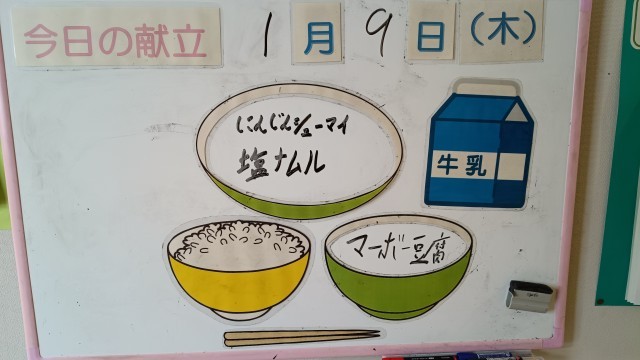 今日の献立 1月9日(木)
にんじんシューマイ
塩ナムル
牛乳
マーボー豆腐